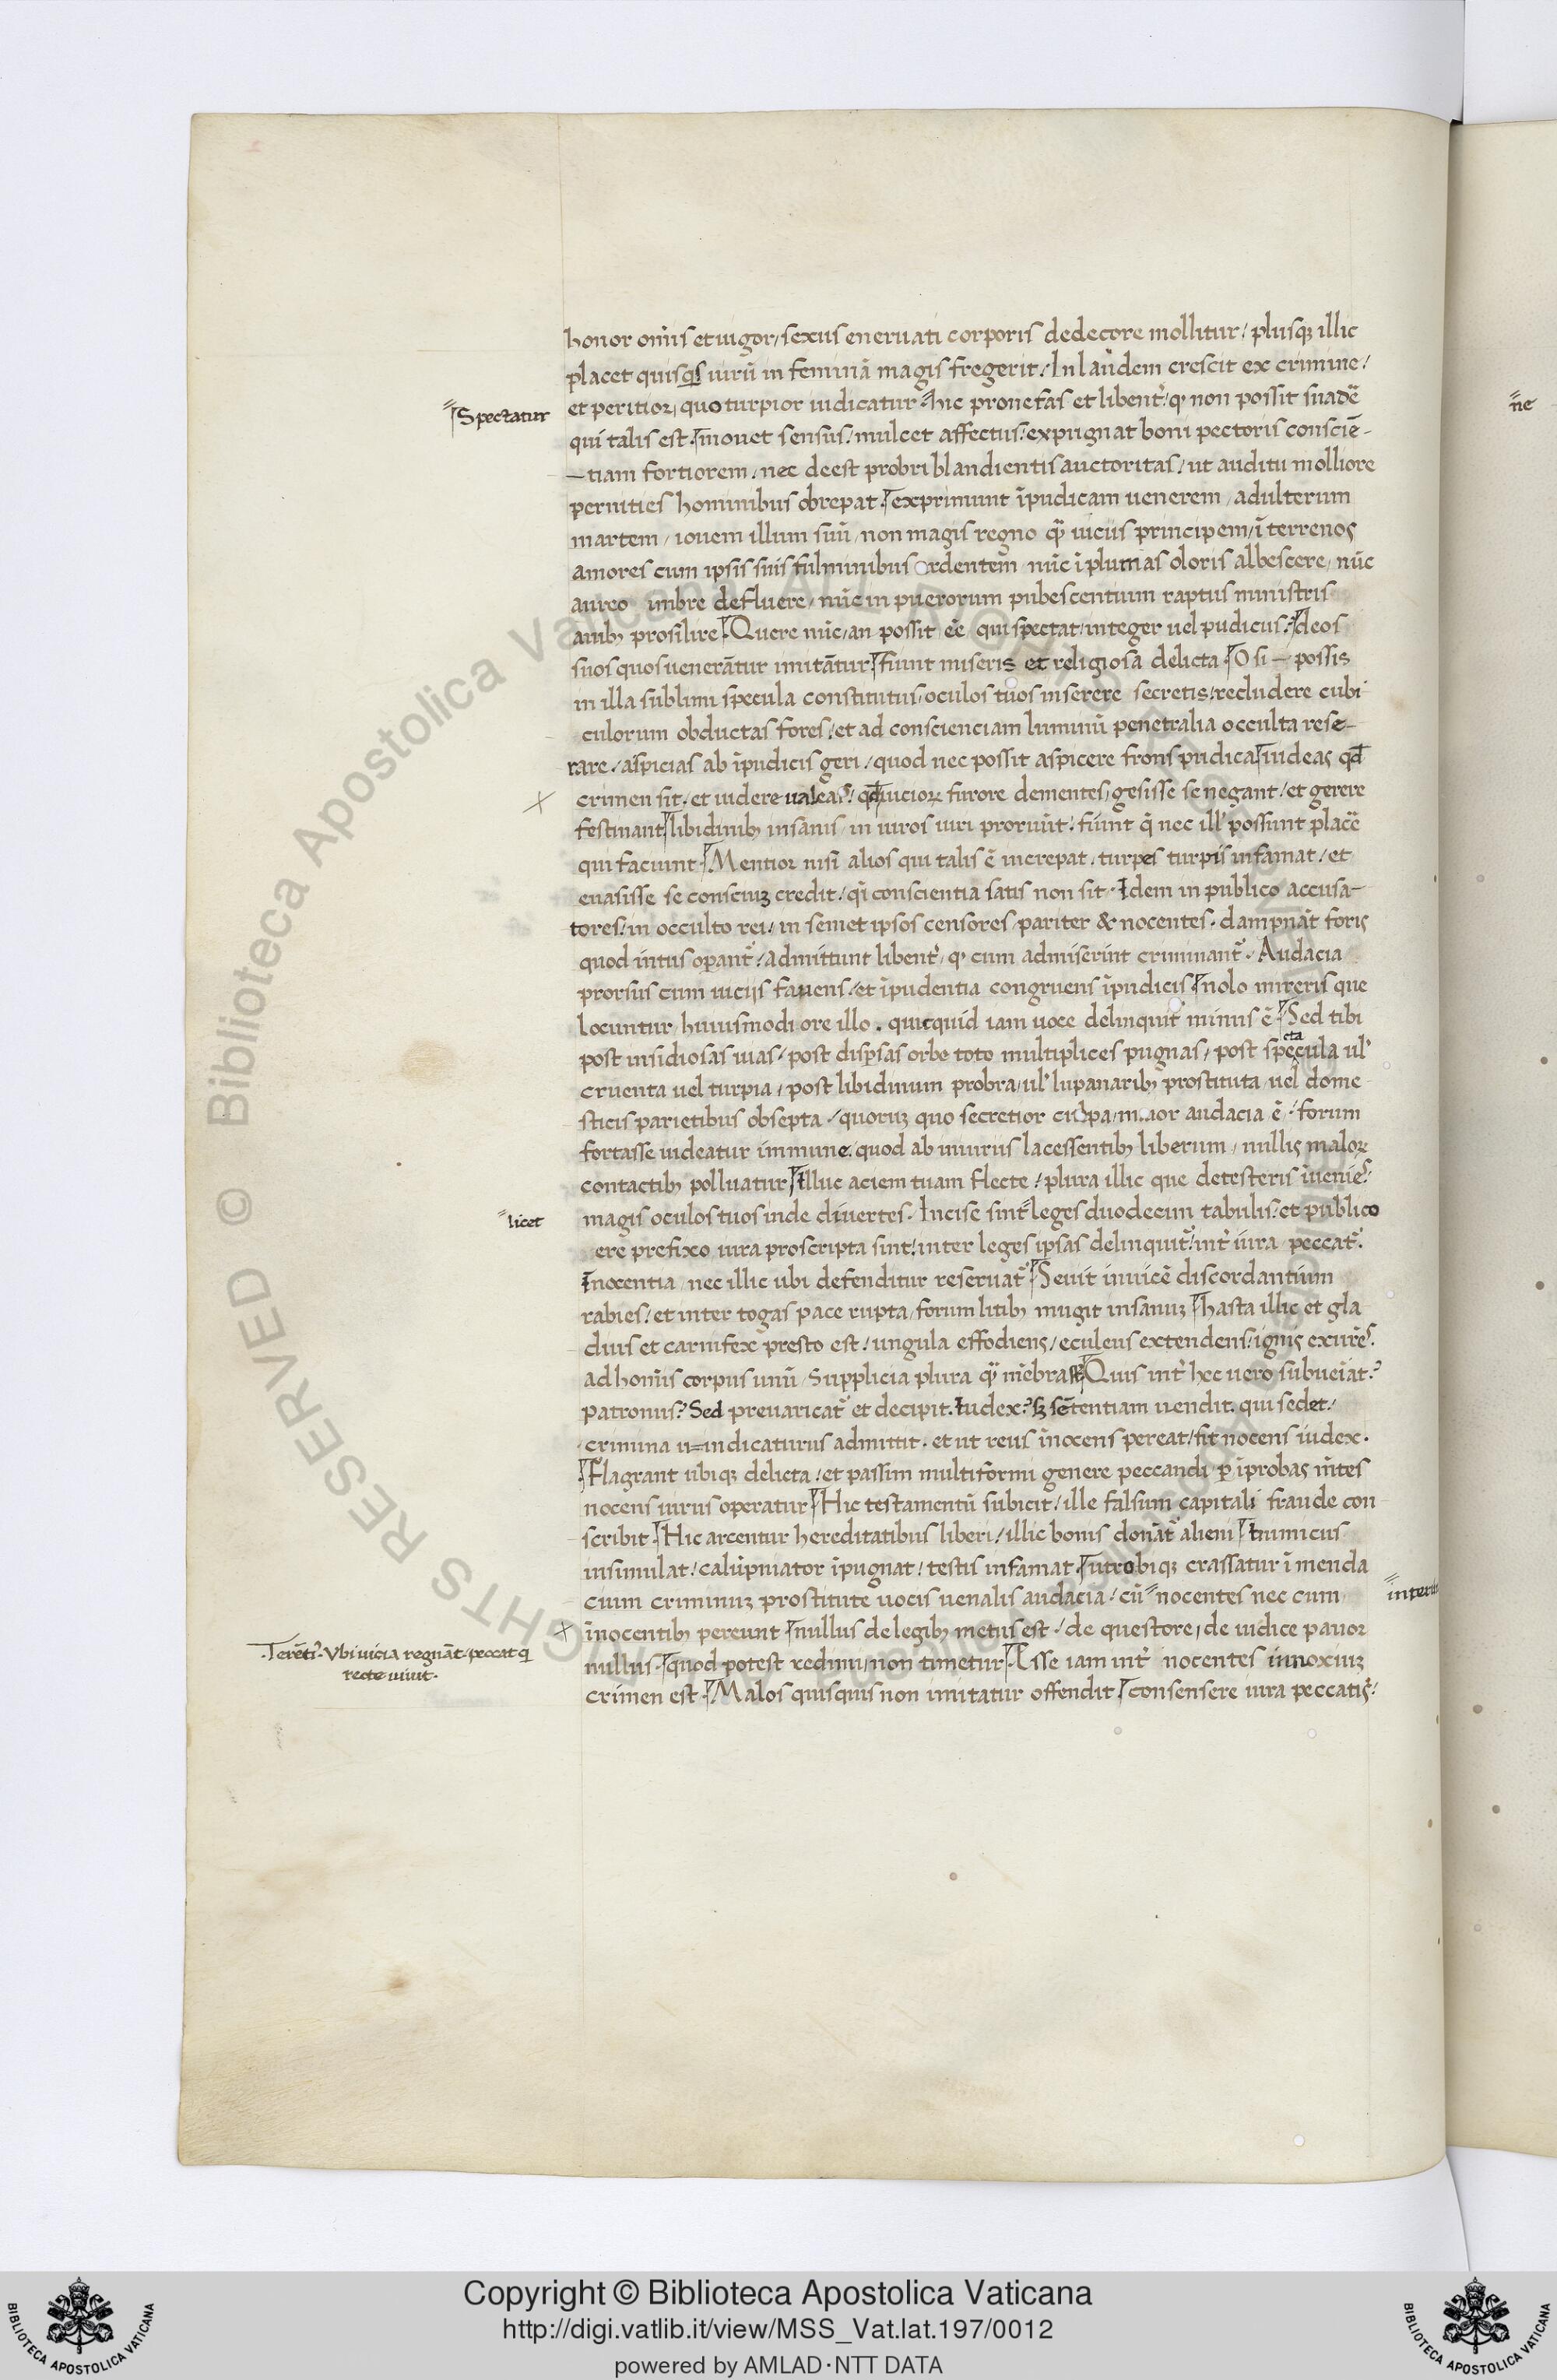 honor om̄is et uigor, sexus eneruati corporis dedecore mollitur, plusqꝫ illic
placet quisq̃s uirū in feminā magis fregerit. In laudem crescit ex crimine,
Spectatur
et peritior, quo turpior iudicatur. hic pronefas et libent̉, qͥ non possit suadē
qui talis est. mouet sensus, mulcet affectus, expugnat boni pectoris consciē-
-tiam fortiorem, nec deest probri blandientis auctoritas, ut auditu molliore
pernities hominibus obrepat. exprimunt īpudicam uenerem, adulterum
martem, iouem illum suū, non magis regno qᷓ uiciis principem, ī terrenos
amores cum ipsis suis fulminibus ardentem, nūc ī plumas oloris albescere, nūc
aureo imbre defluere, nūc in puerorum pubescentium raptus ministris
auibꝫ prosilire. Quere nūc, an possit eē qui spectat, integer uel pudicus? deos
suos quos uenerātur imitātur. fiunt miseris et religiosa delicta. O si — possis
in illa sublimi specula constitutus, oculos tuos inserere secretis, recludere cubi
culorum obductas fores, et ad conscienciam luminū penetralia occulta rese-
rare, aspicias ab īpudicis geri, quod nec possit aspicere frons pudica. uideas qđ
crimen sit, et uidere ualeas, qđ uiciorꝫ furore dementes, gesisse se negant, et gerere
festinant. libidinibꝫ insanis, in uiros uiri proruūt. fiunt q̄ nec ill' possunt placē
qui faciunt. Mentior nisi alios qui talis ē increpat, turpes turpis infamat, et
euasisse se consciuꝫ credit, qͥ conscientia satis non sit. Idem in publico accusa-
tores, in occulto rei, in semet ipsos censores pariter & nocentes. dampnāt foris
quod intus operant᷑, admittunt libent̉, qͥ cum admiserint criminant᷑. Audacia
prorsus cum uiciis fauens, et īpudentia congruens īpudicis. nolo mireris que
locuntur huiusmodi ore illo. quicquid iam uoce delinquit᷑ minus ē. Sed tibi
post insidiosas uias, post dispersas orbe toto multiplices pugnas, post spectacula ul'
cruenta uel turpia, post libidinum probra, ul' lupanaribꝫ prostituta, uel dome
sticis parietibus obsepta, quoruꝫ quo secretior culpa, maior audacia ē, forum
fortasse uideatur immune. quod ab iniuriis lacessentibꝫ liberum, nullis malorꝫ
contactibꝫ polluatur. Illuc aciem tuam flecte, plura illic que detesteris īuenies.
licet
magis oculos tuos inde diuertes. Incise sint leges duodecim tabulis, et publico
ere prefixo iura proscripta sint, inter leges ipsas delinquit᷑, int̉ iura peccat᷑.
Inocentia, nec illic ubi defenditur reseruat᷑. Seuit inuicē discordantium
rabies, et inter togas pace rupta, forum litibꝫ mugit insanuꝫ. hasta illic et gla
dius et carnifex presto est, ungula effodiens, eculeus extendens, ignis exurēs.
ad homīs corpus unū supplicia plura qᷓ mēbra st̄. Quis int̉ hec uero subueīat?
patronus? Sed preuaricat᷑ et decipit. Iudex? sꝫ sētentiam uendit. qui sedet,
crimina u=indicaturus admittit. et ut reus inocens pereat, fit nocens iudex.
Flagrant ubiqꝫ delicta, et passim multiformi genere peccandi ꝑ īprobas mētes
nocens uirus operatur. Hic testamentū subicit, ille falsum capitali fraude con
scribit. Hic arcentur hereditatibus liberi, illic bonis donāt᷑ alieni. Inimicus
insimulat, calūpniator īpugnat, testis infamat. utrobiqꝫ crassatur ī menda
cium criminuꝫ prostitute uocis uenalis audacia, cū nocentes nec cum
interim
īnocentibꝫ pereunt. nullus de legibꝫ metus est, de questore, de iudice pauor
nullus. quod potest redimi, non timetur. Esse iam int̉ nocentes innoxiuꝫ
Terēti'. Vbi uicia regnāt, peccat qͥ
recte uiuit.
crimen est. Malos quisquis non imitatur offendit. consensere iura peccatis,
ne
Copyright © Biblioteca Apostolica Vaticana
http://digi.vatlib.it/view/MSS_Vat.lat.197/0012
powered by AMLAD·NTT DATA
BIBLIOTECA APOSTOLICA VATICANA
BIBLIOTECA APOSTOLICA VATICANA